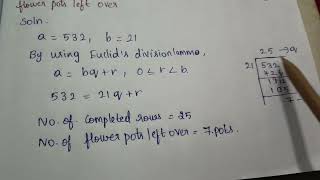 flower pots left over
Soln.
a = 532, b = 21
By using Euclid's division lemma,
a = bq + r, 0 ≤ r < b
532 = 21q + r
No. of completed rows = 25
No. of flower pots left over = 7 pots.
25 → q
21
532
42
105
7